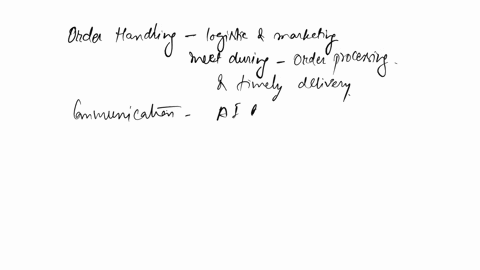 Order Handling - logistic & marketing
meet during - Order processing.
& timely delivery.
Communication -